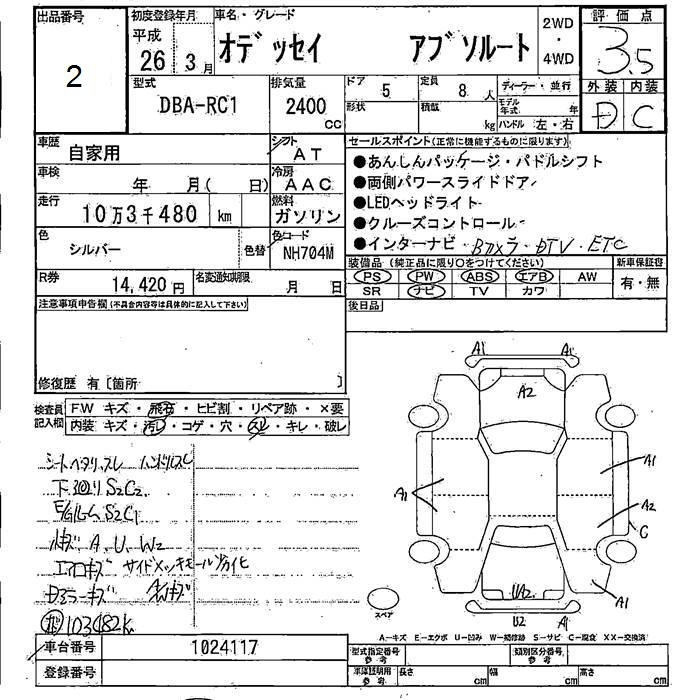 出品番号
2
初度登録年月
平成
26 3月
車名・グレード
オデッセイ アブソルート
2WD
・
4WD
評価点
3.5
型式
DBA-RC1
排気量
2400
cc
ドア
5
定員
8 人
ディーラー・並行
外装 内装
D C
形状
積載
kg
モデル年式 年
ハンドル 左・右
車歴
自家用
シフト
AT
セールスポイント(正常に機能するものに限ります)
●あんしんパッケージ・パドルシフト
●両側パワースライドドア
●LEDヘッドライト
●クルーズコントロール
●インターナビ・Bカメラ・DTV・ETC
車検
年 月( 日)
冷房
AAC
走行
10万3千480 km
燃料
ガソリン
色
シルバー
色替
色コード
NH704M
装備品(純正品に限り○をつけてください)
新車保証書
PS PW ABS エアB AW
有・無
SR ナビ TV カワ
R券
14,420円
名変通知期限
月 日
後日品
注意事項申告欄(不具合内容等は具体的に記入して下さい)
修復歴 有〔箇所 〕
検査員記入欄
FW キズ・飛石・ヒビ割・リペア跡・×要
内装 キズ・汚れ・コゲ・穴・スレ・キレ・破レ
シートヘタリ、スレ ハンドルスレ
下回り S2C2
E/Gルーム S2C1
小キズ A、U、W2
エアロキズ サイドメッキモール劣化
Dミラーキズ AWキズ
103482K
A1 A1
A2
A1
A1
A2
C
UA2
A1
U2 A1
スペア
A…キズ E…エクボ U…凹み W…補修跡 S…サビ C…腐食 XX…交換済
車台番号
1024117
登録番号
型式指定番号
参考
類別区分番号
参考
車庫証明用
参考
長さ cm
幅 cm
高さ cm